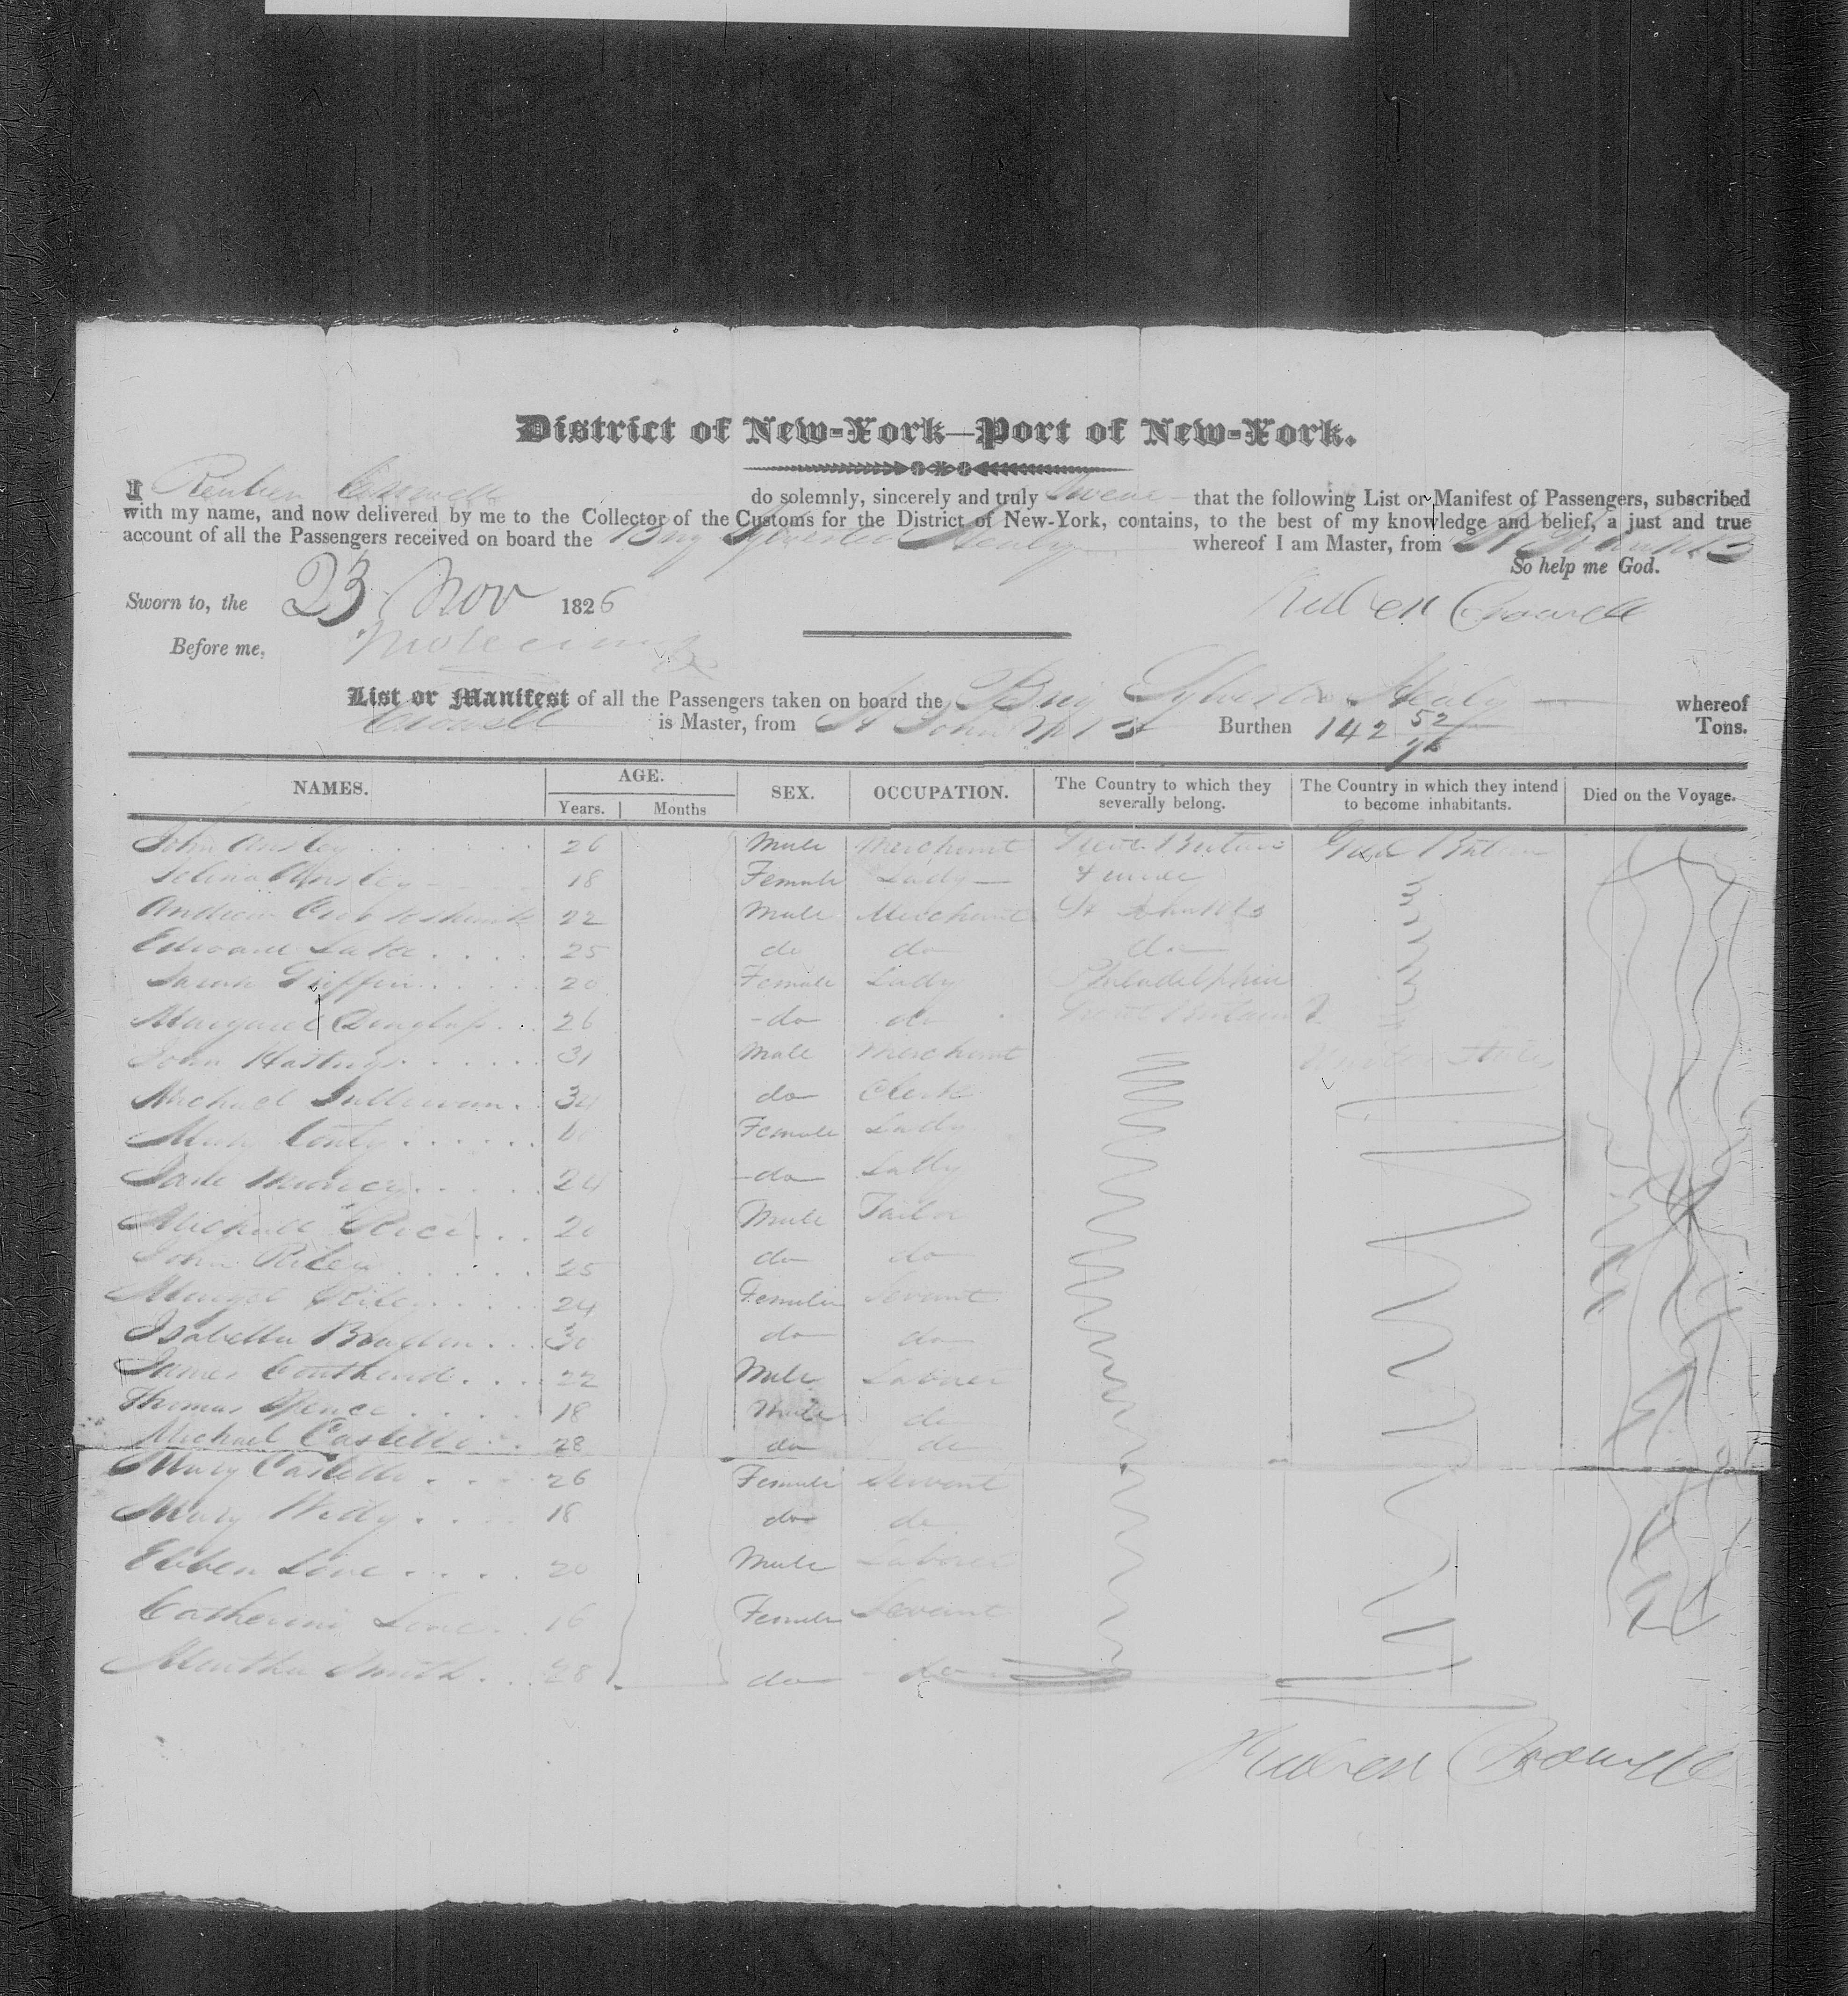 District of New-York—Port of New-York.
I Reuben Crowell do solemnly, sincerely and truly Swear that the following List or Manifest of Passengers, subscribed
with my name, and now delivered by me to the Collector of the Customs for the District of New-York, contains, to the best of my knowledge and belief, a just and true
account of all the Passengers received on board the Brig Sylvester Healy whereof I am Master, from St Johns
So help me God.
Sworn to, the 23 Nov 1826 Reuben Crowell
Before me,
List or Manifest of all the Passengers taken on board the Brig Sylvester Healy whereof
Crowell is Master, from St Johns Burthen 142 52/95 Tons.
NAMES. AGE. SEX. OCCUPATION. The Country to which they severally belong. The Country in which they intend to become inhabitants. Died on the Voyage.
Years. Months
John Ansley 26 Male Merchant Great Britain Great Britain
Selina Ansley 18 Female Lady
Andrew 22 Male Merchant St Johns
Edward 25 do do do
Sarah Griffin 20 Female Lady Philadelphia
Margaret 26 do do Great Britain
John Hastings 31 Male Merchant United States
Michael Sullivan 34 do Clerk
Mary Female Lady
24 do Lady
Michael 20 Male Tailor
John Riley 25 do do
Margt Riley 24 Female Servant
Isabella 30 do do
James 22 Male Laborer
Thomas Spence 18 Male do
Michael Castello 28 do do
Mary Castello 26 Female Servant
Mary 18 do do
20 Male Laborer
Catherine 16 Female Servant
Martha Smith 28 do do
Reuben Crowell